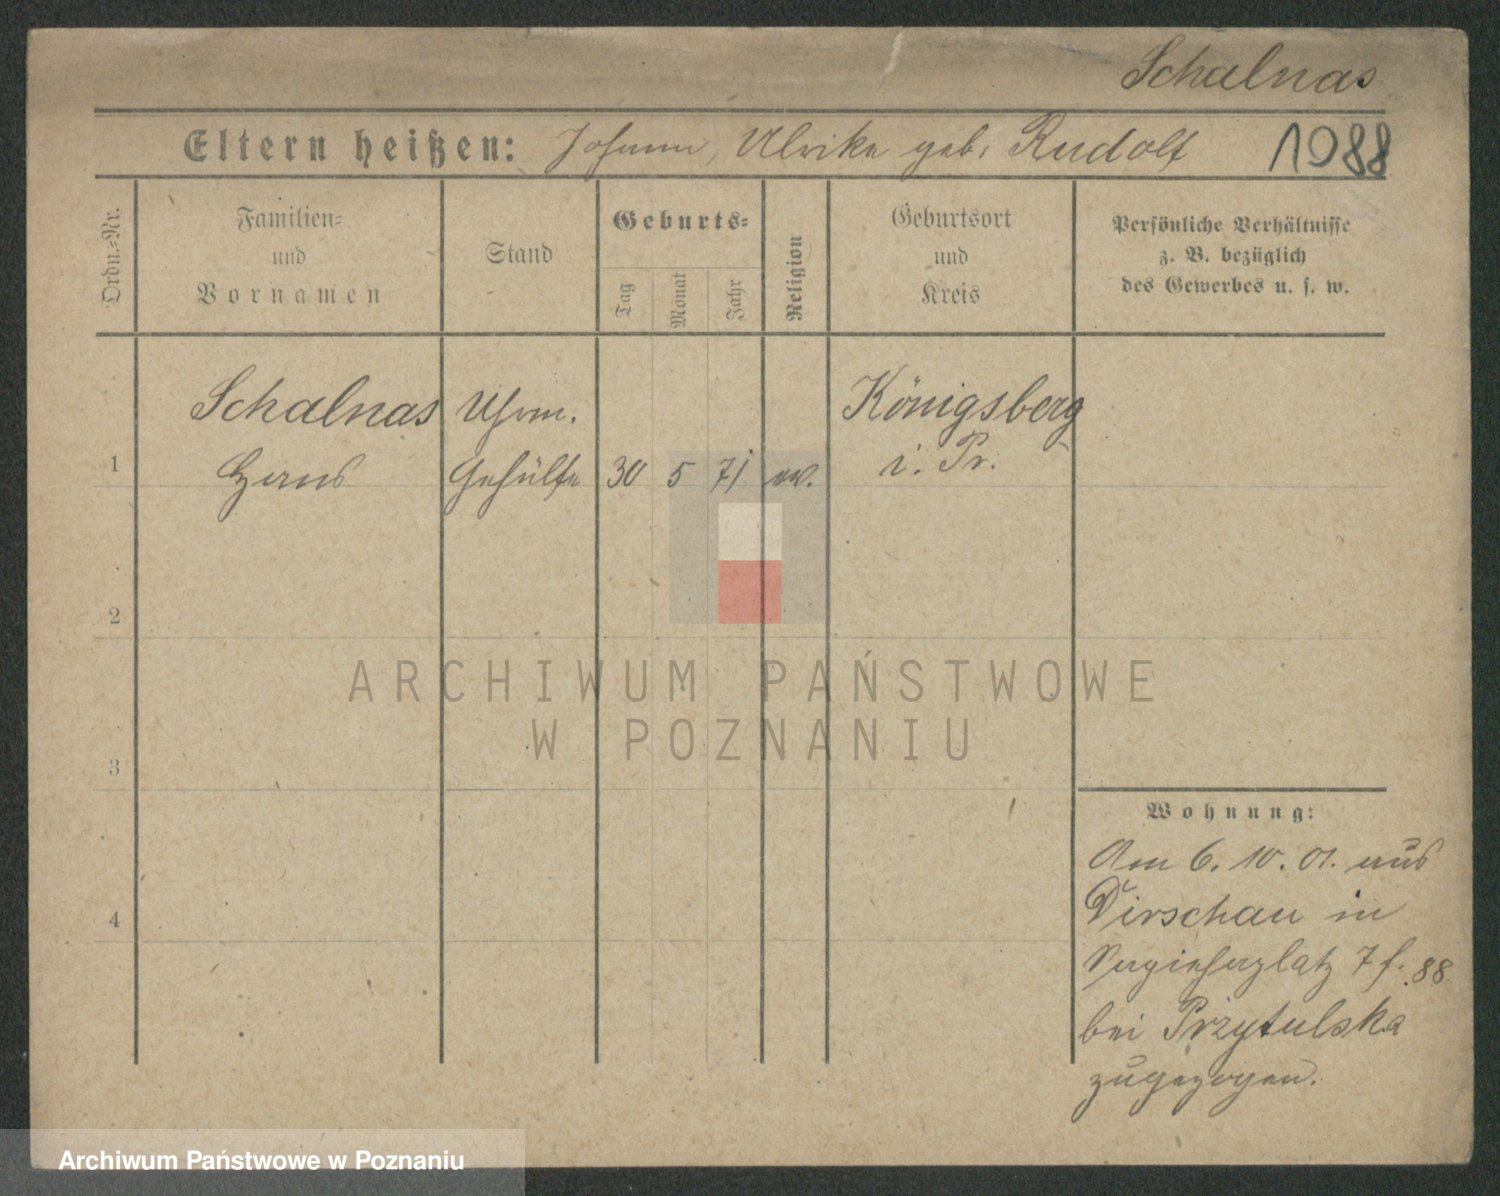 Schalnas
Eltern heißen: Johann, Ulrike geb. Rudolf 1988
Ordn.=Nr.
Familien=
und
Vornamen
Stand
Geburts=
Tag
Monat
Jahr
Religion
Geburtsort
und
Kreis
Persönliche Verhältnisse
z. B. bezüglich
des Gewerbes u. s. w.
Schalnas Uhrm. Königsberg
1 Hans Gehülfe 30 5 71 ev. i. Pr.
2
ARCHIWUM PAŃSTWOWE
W POZNANIU
3
Wohnung:
Am 6. 10. 01. aus
4
Dirschau in
7 f. 88
bei Przytulska
zugezogen.
Archiwum Państwowe w Poznaniu